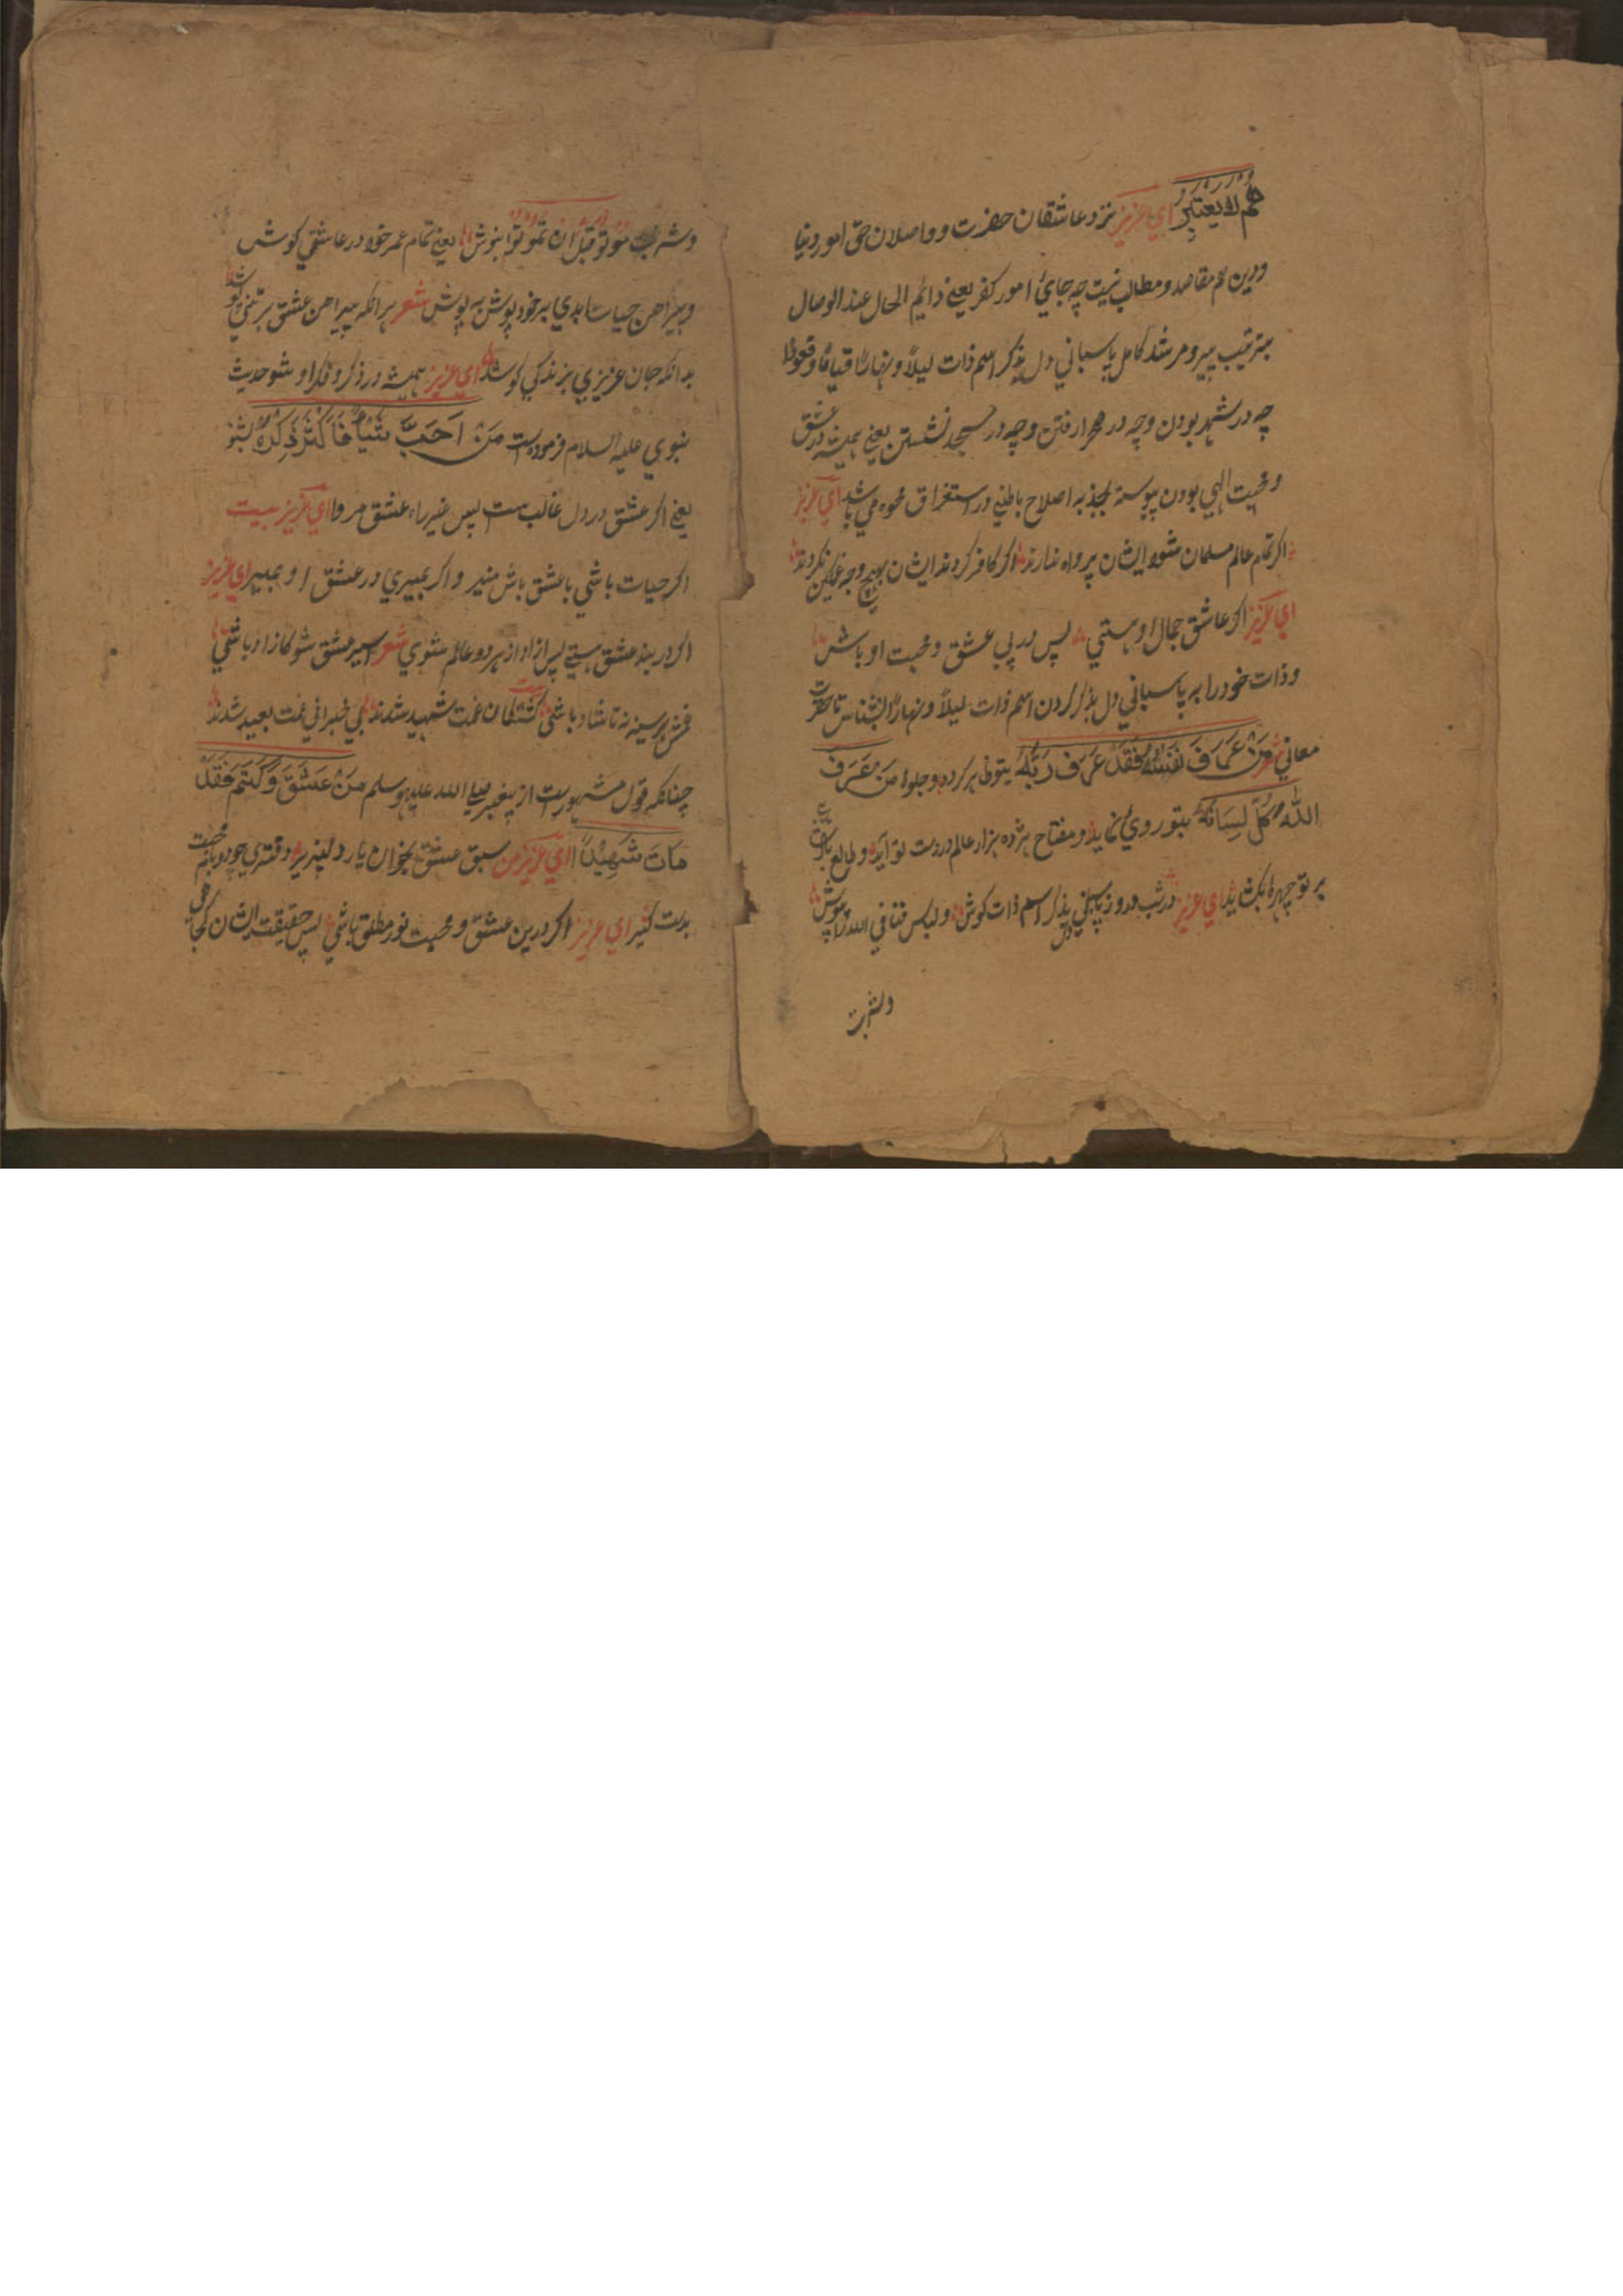 هم لا يعتبر اي عزيز نزد عاشقان حضرت و واصلان حق امور دنيا
ودين هم مقاصد ومطالب نيست چه جاي امور كفر يعني دائم الحال عند الوصال
بترتيب پير ومرشد كامل پاسباني دل بذكر اسم ذات ليلاً ونهاراً قياماً وقعوداً
چه در شهر بودن وچه در صحرا رفتن وچه در مسجد نشستن يعني هميشه در عشق
ومحبت الهي بودن پيوسته بجذبه اصلاح باطني در استغراق محوه مي باشد اي عزيز
اكر تمام عالم مسلمان شود ايشان پرواه ندارند اكر كافر كردند ايشان بهيچ وجه غمكين نكردند
اي عزيز اكر عاشق جمال او هستي پس در پي عشق ومحبت او باش
وذات خود را به پاسباني دل بذكر كردن اسم ذات ليلاً ونهاراً بشناس تا حضرت
معاني شعر مَنْ عَرَفَ نَفْسَهُ فَقَدْ عَرَفَ رَبَّهُ بتو ظاهر كرده وجلوه مَنْ عَرَفَ
اللهَ كَلَّ لِسَانُهُ بتو روي نمايد ومفتاح هژده هزار عالم در دست تو آيد وطالع
بر تو چهره بكشايد اي عزيز در شب و روز پاسباني دل بذكر اسم ذات كوش ولباس فنا في الله را پوش
وشربت
وشربت موتو قبل ان تموتوا بنوش يعني تمام عمر خود در عاشقي كوش
وپيراهن حيات ابدي بر خود پوش به پوش شعر هر انكه پيراهن عشق بر تني پوشد
بدانكه جان عزيزي بزندكي كوشد اي عزيز هميشه در ذكر وفكر او شو حديث
نبوي عليه السلام فرموده است مَنْ اَحَبَّ شَيْاً فَاَكْثَرَ ذِكْرَهُ بشنو
يعني اكر عشق در دل غالب هست پس غير راه عشق مرو اي عزيز بيت
اكر حيات باشي با عشق باش منير و اكر بميري در عشق او بمير اي عزيز
اكر در بند عشق هستي پس ازاد از هر دو عالم شوي شعر اسير عشق شو كازاد باشي
غمش بر سينه نه تا شاد باشي بيت كشتكان غمت شهيد شدند بي خبراني غمت بعيد شدند
چنانكه قول مشهور است از پيغمبر صلي الله عليه وسلم مَنْ عَشَقَ وَكَتَمَ فَقَدْ
مَاتَ شَهِيْدًا اي عزيز من سبق عشق بخوان يار دلپذير دفتري محبت
بدست كير اي عزيز اكر درين عشق ومحبت نور مطلق باشي پس حقيقت ايشان